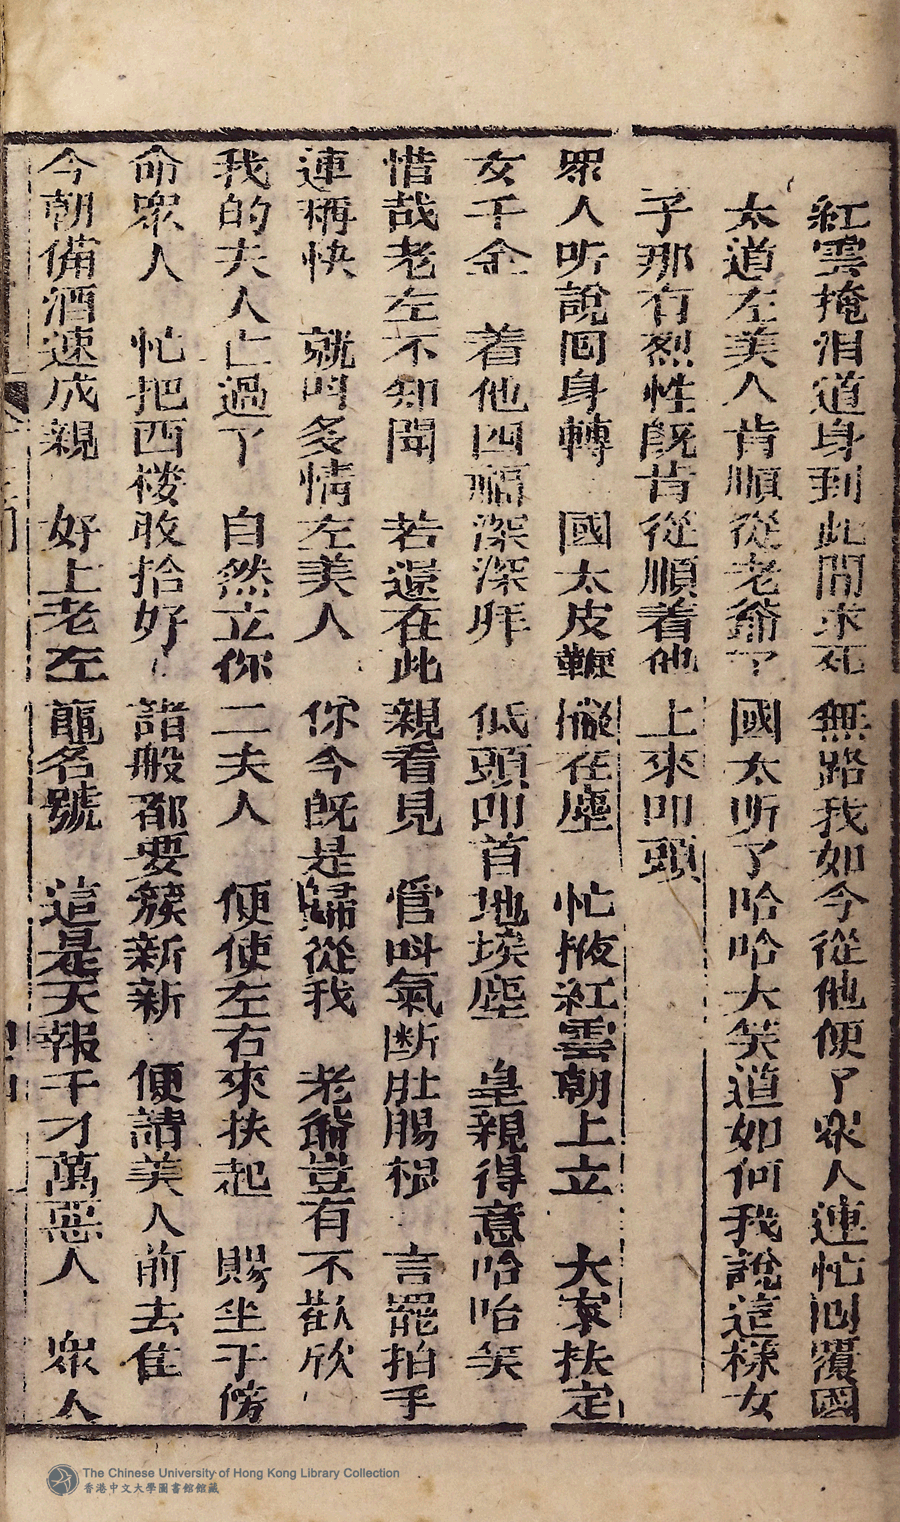 紅雲掩泪道身到此間求死無路我如今從他便了眾人連忙回覆國
太道左美人肯順從老爺了國太听了哈哈大笑道如何我說這樣女
子那有烈性既肯從順着他上來叩頭
眾人听說囬身轉 國太皮鞭撇在塵 忙掖紅雲朝上立 大家扶定
女千金 着他四福深深拜 低頭叩首地埃塵 皇親得意哈哈笑
惜哉老左不知聞 若還在此親看見 管呌氣断肚腸根 言罷拍手
連稱快 就呌多情左美人 你今既是歸從我 老爺豈有不歡欣
我的夫人亡過了 自然立你二夫人 便使左右來扶起 賜坐于傍
命眾人 忙把西楼收拾好 諸般都要簇新新 便請美人前去住
今朝備酒速成親 好上老左龍名號 這是天報千刁萬惡人 眾人
The Chinese University of Hong Kong Library Collection
香港中文大學圖書館館藏